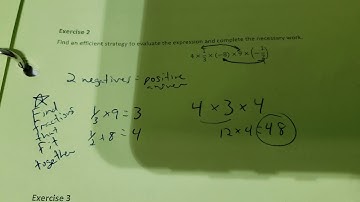 Exercise 2
Find an efficient strategy to evaluate the expression and complete the necessary work.
4 × 1/3 × (-8) × 9 × (-1/2)
2 negatives = positive
answer
☆
Find
fractions
that
fit
together
1/3 × 9 = 3
1/2 × 8 = 4
4 × 3 × 4
12 × 4 = 48
Exercise 3